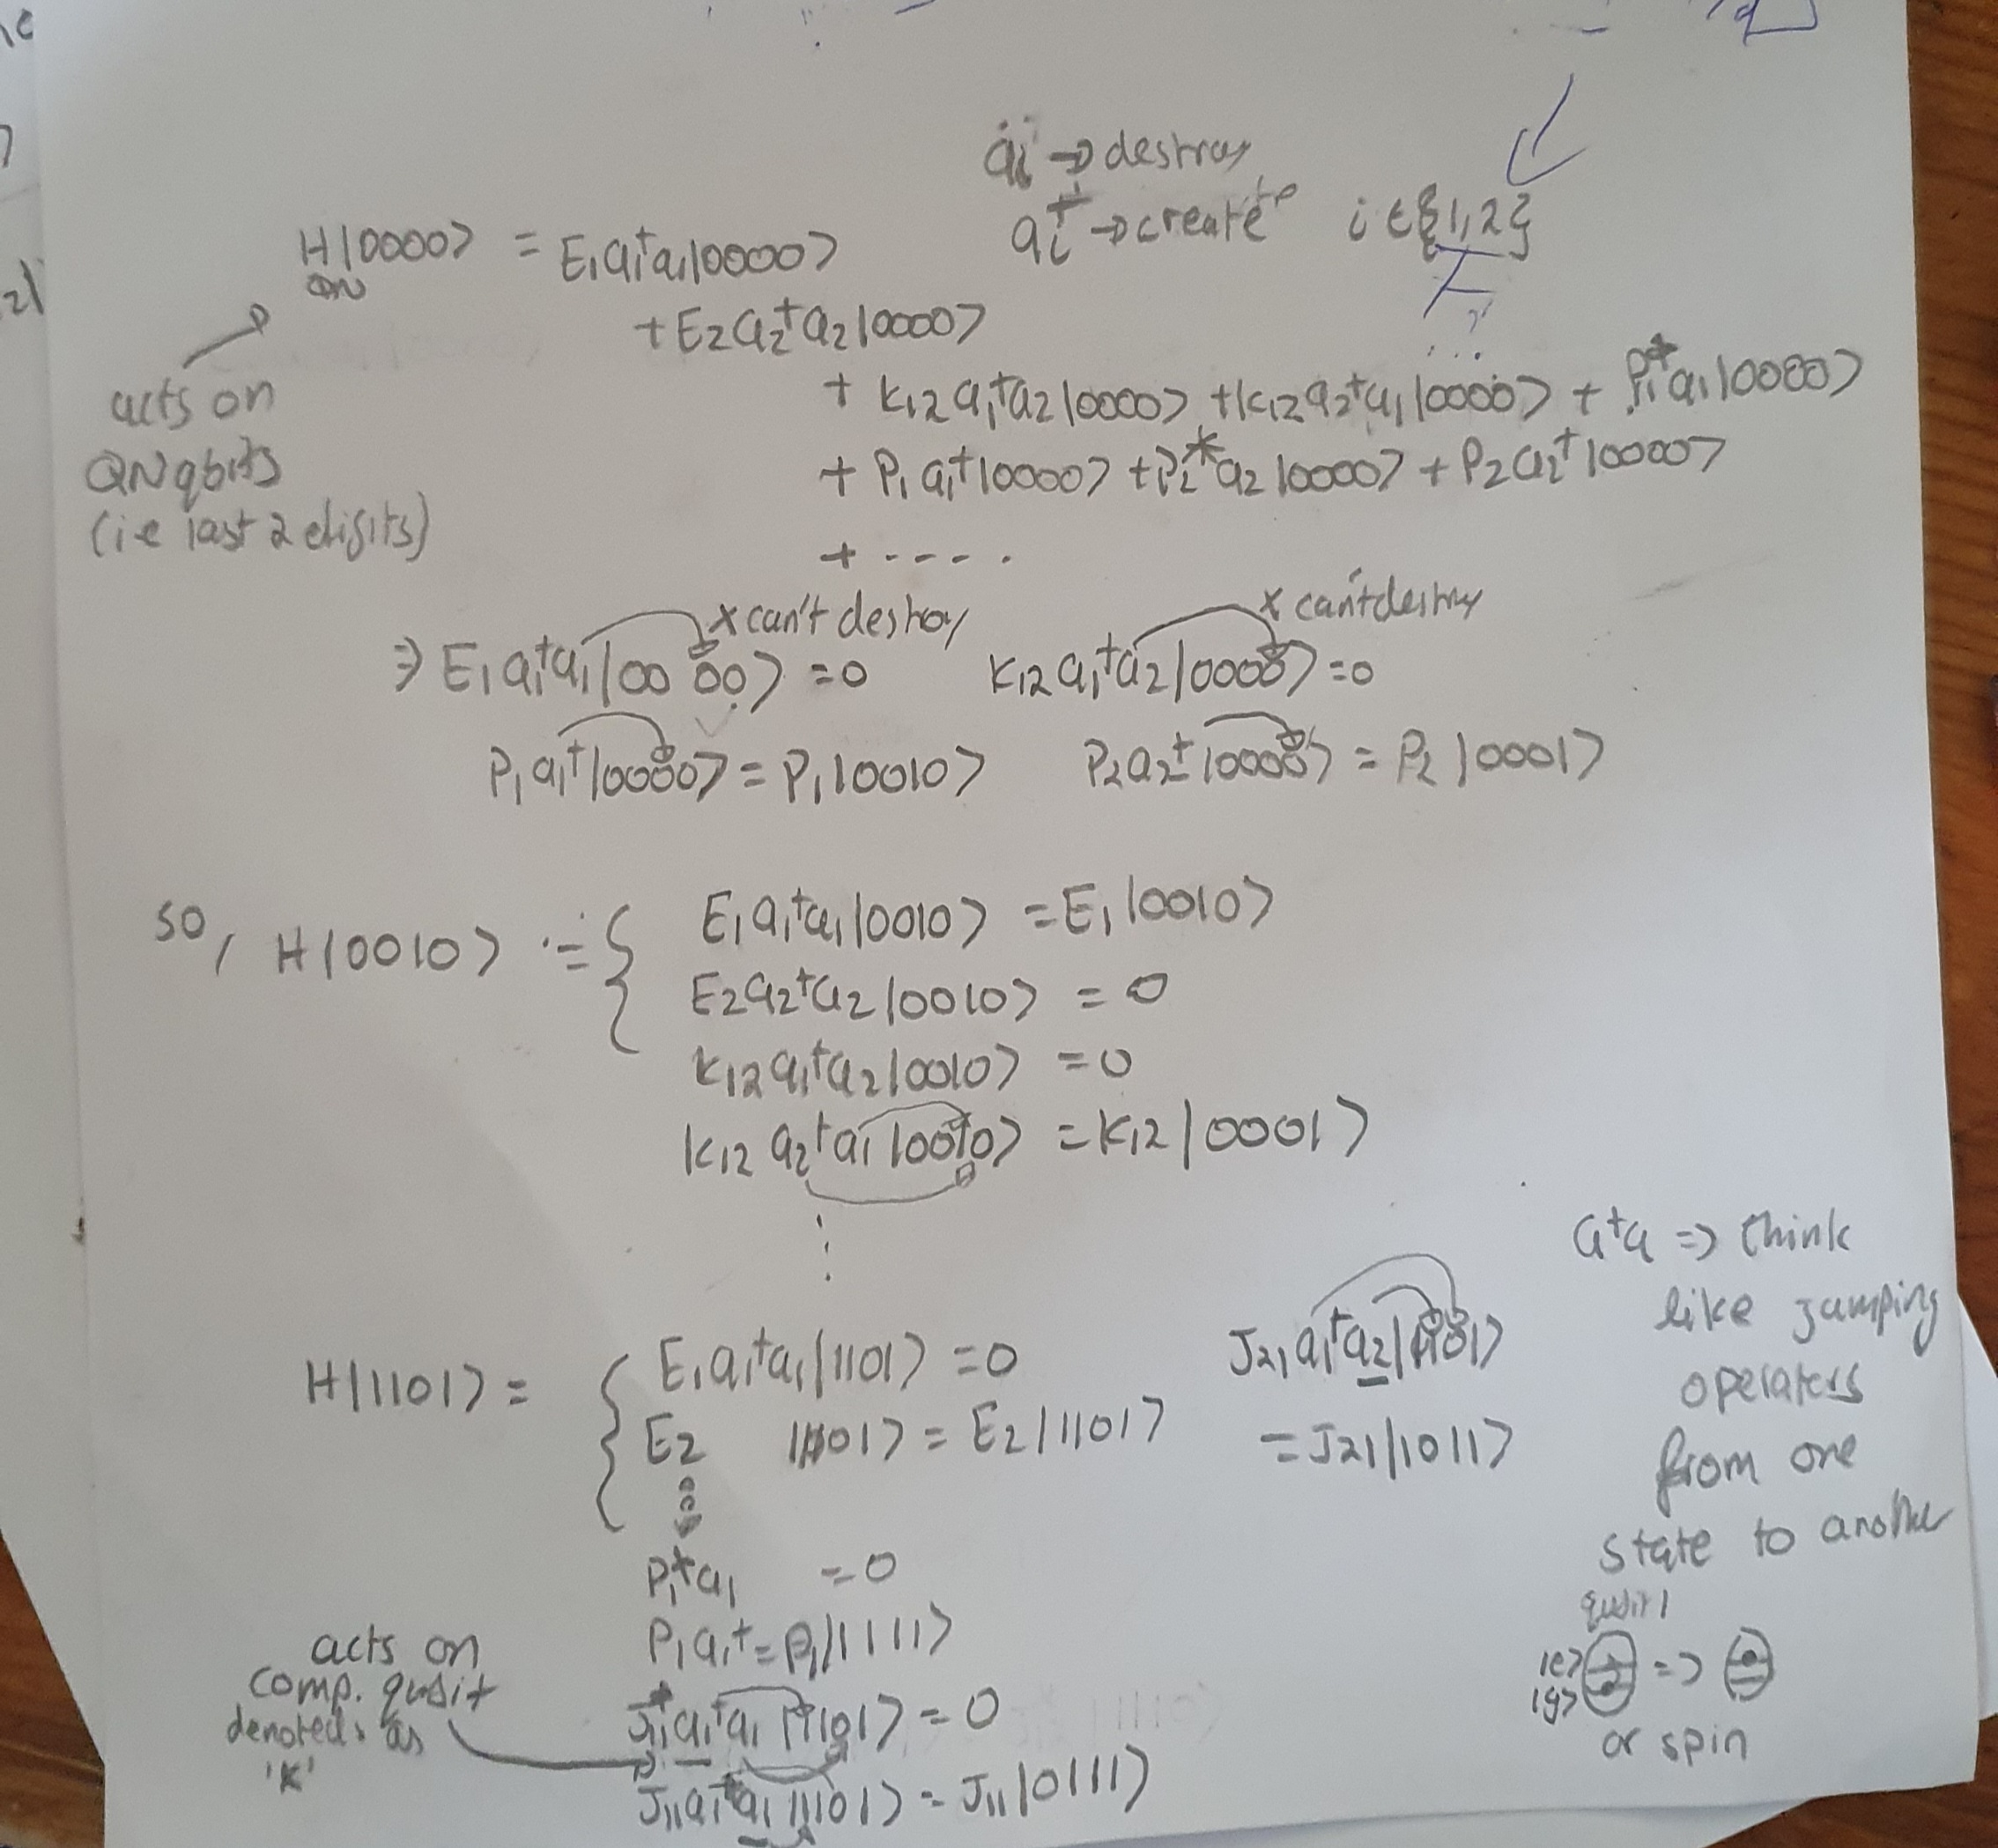 ai → destroy
ai† → create i ∈ {1,2}
H|0000> = E1a1†a1|0000>
QN
+E2a2†a2|0000>
+ K12a1†a2|0000> + K12a2†a1|0000> + P1*a1|0000>
+ P1a1†|0000> + P2*a2|0000> + P2a2†|0000>
+ ----.
acts on
QN qbits
(i.e last 2 digits)
x can't destroy x can't destroy
⇒ E1a1†a1|0000> = 0 K12a1†a2|0000> = 0
P1a1†|0000> = P1|0010> P2a2†|0000> = P2|0001>
so, H|0010> := { E1a1†a1|0010> = E1|0010>
E2a2†a2|0010> = 0
K12a1†a2|0010> = 0
K12a2†a1|0010> = K12|0001>
⋮
H|1101> = { E1a1†a1|1101> = 0
E2 |1101> = E2|1101>
⋮
P1*a1 = 0
P1a1† = P1|1111>
J11*a1†a1|1101> = 0
J11a1†a1|1101> = J11|0111>
J21a1†a2|1101>
= J21|1011>
acts on
comp. qubit
denoted as
'K'
a†a => think
like jumping
operators
from one
state to another
qubit 1
|e>
|g> =>
or spin